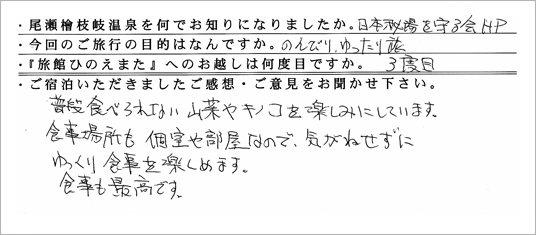 ・尾瀬檜枝岐温泉を何でお知りになりましたか。日本秘湯を守る会HP
・今回のご旅行の目的はなんですか。のんびり、ゆったり旅
・『旅館ひのえまた』へのお越しは何度目ですか。 3度目
・ご宿泊いただきましたご感想・ご意見をお聞かせ下さい。
普段食べられない山菜やキノコを楽しみにしています。
食事場所も個室や部屋なので、気がねせずに
ゆっくり食事を楽しめます。
食事も最高です。